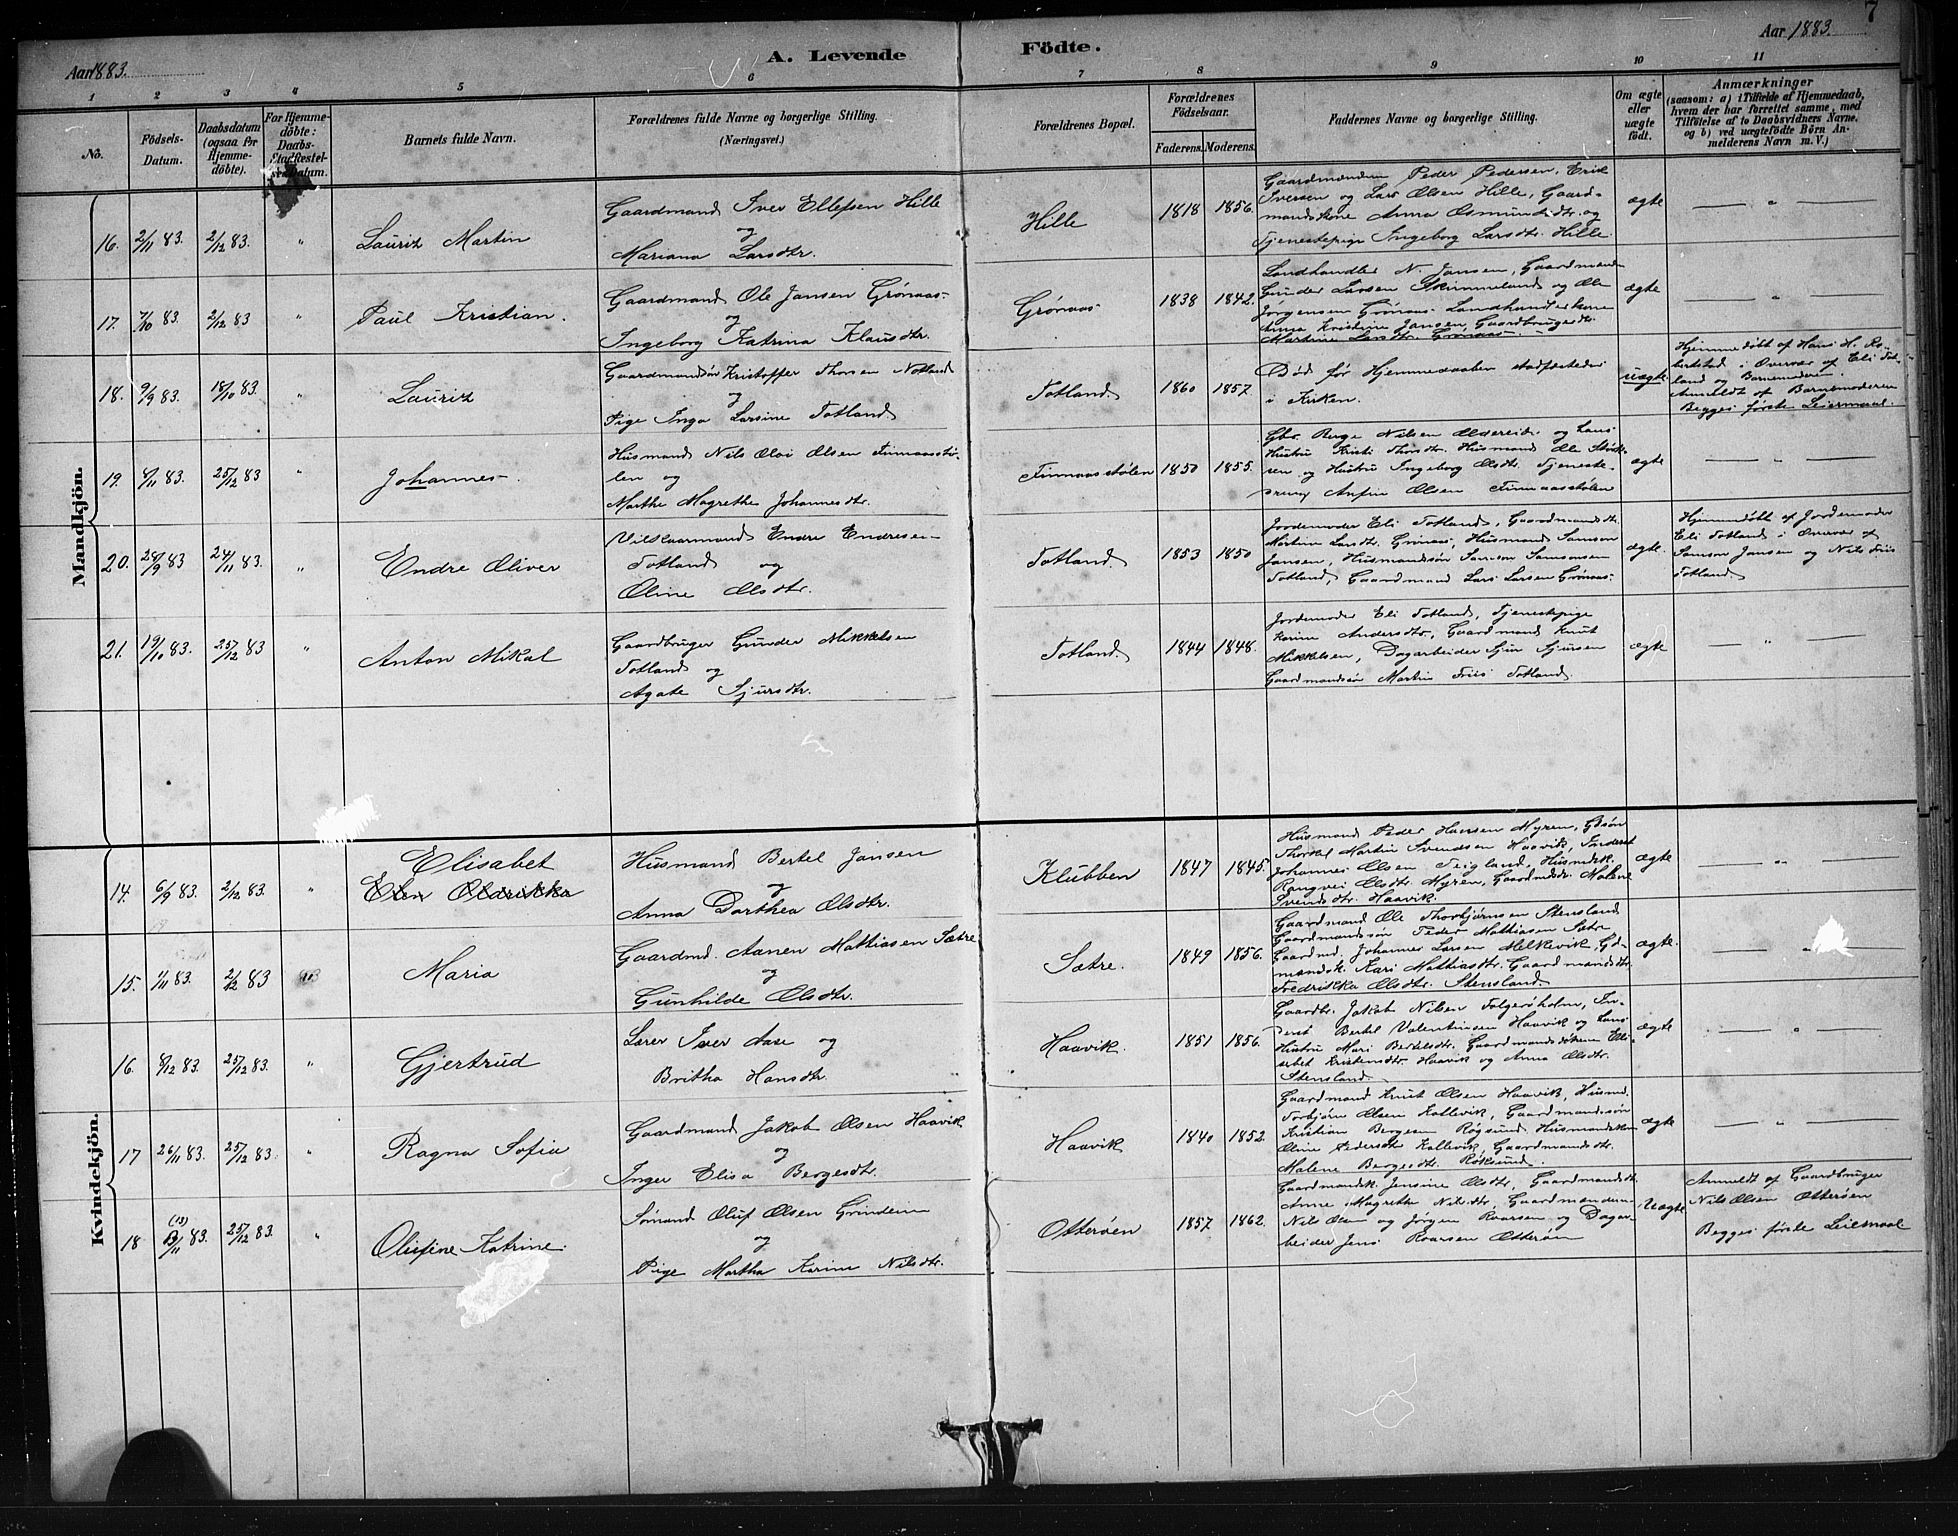 7
Aar 1883.
A. Levende Födte.
Aar 1883.
1 2 3 4 5 6 7 8 9 10 11
No.
Födsels-Datum.
Daabsdatum (ogsaa for Hjemme-döbte).
For Hjemme-döbte: Daabs-
Barnets fulde Navn.
Forældrenes fulde Navne og borgerlige Stilling.
(Næringsvei.)
Forældrenes Bopæl.
Forældrenes Födselsaar.
Faderens. Moderens.
Faddernes Navne og borgerlige Stilling.
Om ægte eller uægte födt.
Anmærkninger
(saasom: a) i Tilfælde af Hjemmedaab,
hvem der har forrettet samme, med
Tilföielse af to Daabsvidners Navne.
og b) ved uægtefödte Börn An-
melderens Navn m. V.)
Mandkjön.
16. 2/11 83. 2/12 83. " Lauriz Martin
Gaardmand Iver Ellefsen Hille
og
Mariana Larsdtr.
Hille 1818 1856.
Gaardmændene Peder Pedersen, Erik
Iversen og Lars Olsen Hille, Gaard-
mandskone Anna Osmundsdtr. og
Tjenestepige Ingeborg Larsdtr. Hille.
ægte — " —
17. 7/10 83. 2/12 83 " Paul Kristian.
Gaardmand Ole Jansen Grönaas-
og
Ingeborg Katrina Klausdtr.
Grönaas 1838 1842.
Landhandler N. Jansen, Gaardmænd
Gunder Larsen Skimmeland og Ole
Jörgensen Grönaas. Landhandlerkone
Anna Kristine Jansen, Gaardbrugerdtr.
Martine Larsdtr. Grönaas
ægte — " —
18. 9/9 83. 18/10 83. " Lauriz
Gaardmandsön Kristoffer Thorsen Notland
og
Pige Inga Larsine Totland
Totland. 1860 1857.
Död för Hjemmedaaben stadfæstedes
i Kirken.
uægte.
Hjemmedöbt af Hans H. Ro-
berstad i Overvær af Eli Tot-
land og Barnemoderen.
Anmeldt af Barnemoderen
Begges förste Leiermaal.
19. 4/11 83. 25/12 83 " Johannes-
Husmand Nils Olai Olsen Finnaasstö-
len og
Marthe Magrethe Johannesdtr.
Finnaasstölen 1850 1855.
Gbr. Berge Nilsen Aldereide og Hans
Hustru Kristi Thorsdtr. Husmand Ole
sen og Hustru Ingeborg Olsdtr. Tjeneste-
dreng Anfin Olsen Finnaasstölen
ægte — " —
20. 28/9 83 24/11 83. " Endre Oliver
Vilkaarmand Endre Endresen-
Totland og
Oline Olsdtr.
Totland. 1853 1850
Jordemoder Eli Totland, Gaardmandsdtr.
Martine Larsdtr. Grönaas, Husmand Samson
Jansen, Husmandsön Samson Samsonsen
Totland, Gaardmand Lars Larsen Grönaas-
ægte.
Hjemmedöbt af Jordemoder
Eli Totland i Overvær af
Samson Jansen og Nils Friis
Totland.
21. 19/10 83. 25/12 83 " Anton Mikal
Gaardbruger Gunder Mikkelsen
Totland og
Agate Sjursdtr.
Totland. 1844 1848.
Jordemoder Eli Totland, Tjenestepige
Karine Andersdtr, Gaardmand Knut
Mikkelsen, Dagarbeider Sjur Sjursen
Gaardmandsön Martin Friis Totland.
ægte — " —
Kvindekjön.
14. 6/9 83. 2/12 83. " Elisabet
Elen Oldrikka
Husmand Bertel Jansen
og
Anna Dorthea Olsdtr.
Klubben 1847 1845.
Husmand Peder Hansen Myren, Gdsön
Thorkel Martin Svendsen Haavik, Inderst
Johannes Olsen Teigland, Husmdsk.
Rangvei Olsdtr. Myren, Gaardmdsdtr. Malene
Svendsdtr. Haavik.
ægte — " —
15. 1/11 83. 2/12 83 " Maria
Gaardmd. Aanen Mattiasen Sætre
og
Gunhilde Olsdtr.
Sætre. 1849 1856.
Gaardmand Ole Thorbjörnsen Stensland
Gaardmandsön Peder Mattiasen Sætre
Gaardmd. Johannes Larsen Melkevik, Gd-
mandsk. Kari Mattiasdtr. Gaardmandsdtr.
Fredrikke Olsdtr. Stensland.
ægte. — " —
16. 8/12 83. 25/12 83. " Gjertrud
Lærer Iver Aase og
Britha Hansdtr.
Haavik. 1851 1856.
Gaardbr. Jakob Nilsen Folgeröholm, In-
derst Bertel Valentinsen Haavik og Hans
Hustru Mari Bertelsdtr. Gaardmandsdöttrene Eli-
sabet Kristensdtr. Haavik og Anna Olsdtr.
Stensland.
ægte — " —
17 26/11 83. 25/12 83. " Ragna Sofia
Gaardmand Jakob Olsen Haavik
og
Inger Elisa Bergesdtr.
Haavik 1840 1852.
Gaardmand Knut Olsen Haavik, Husmd.
Torbjörn Olsen Kallevik, Gaardmandssön
Kristian Bergesen Rögsund, Husmandskone
Oline Pedersdtr Kallevik, Gaardmandsdtr.
Malene Bergesdtr. Röksund.
ægte — " —
18 (13) 13/11 83. 25/12 83. " Olufine Katrine.
Sömand Oluf Olsen Grindeim
og
Pige Martha Karine Nilsdtr.
Otteröen 1857 1862.
Gaardmandsk. Jensine Olsdtr, Gaardmandsdtr.
Anne Magrethe Nilsdtr, Gaardmændene
Nils Olsen og Jörgen Roarsen og Dagar-
beider Jens Roarsen Otteröen
Uægte
Anmeldt af Gaardbruger
Nils Olsen Otteröen
Begges förste Leiermaal